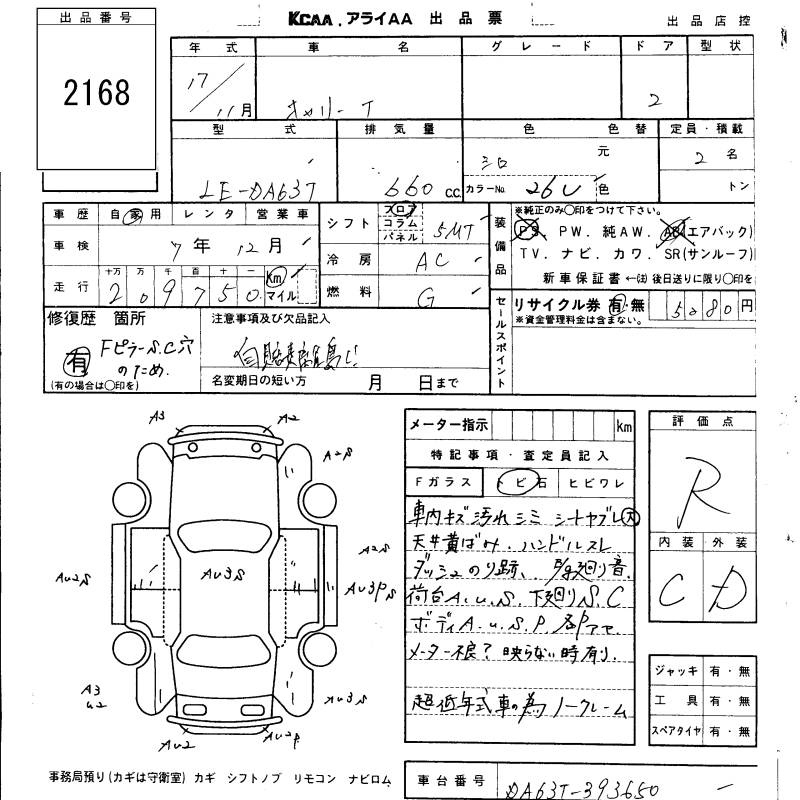 KCAA、アライAA 出品票
出品店控
出品番号
2168
年式 車名 グレード ドア 型状
17/11月 キャリーT 2
型式 排気量 色 色替 定員・積載
LE-DA63T 660cc シロ 元 2名
カラーNo. 26U 色 トン
車歴 自家用 レンタ 営業車
車検 7年12月
走行 十万 万 千 百 十 一
209750 Km マイル
シフト フロア コラム パネル 5MT
冷房 AC
燃料 G
装備品
※純正のみ〇印をつけて下さい。
PS. PW. 純AW. AB(エアバック)
TV. ナビ. カワ. SR(サンルーフ)
新車保証書←(注)後日送りに限り〇印を
セールスポイント
リサイクル券 有・無 5280円
※資金管理料金は含まない。
修復歴 箇所
有 FピラーS.C穴のため.
(有の場合は〇印を)
注意事項及び欠品記入
名変期日の短い方 月 日まで
A3 A2
A2S
A2S
AU2S AU3S AU3PS
A3 U2
AU3S
AU2 AU2P
メーター指示 Km
特記事項・査定員記入
Fガラス トビ石 ヒビワレ
車内キズ 汚れ シミ シートヤブレ大
天井黄ばみ. ハンドルスレ
ダッシュのり跡.
廻り音.
荷台A.U.S. 下廻りS.C
ボディA.U.S.P
メーター不良? 映らない時有り.
超低年式車の為 ノークレーム
評価点
R
内装 外装
C D
ジャッキ 有・無
工具 有・無
スペアタイヤ 有・無
事務局預り(カギは守衛室) カギ シフトノブ リモコン ナビロム
車台番号 DA63T-393650